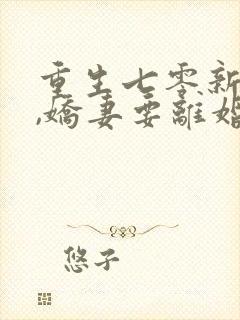 重生七零新
,嬌妻要離婚
悠子